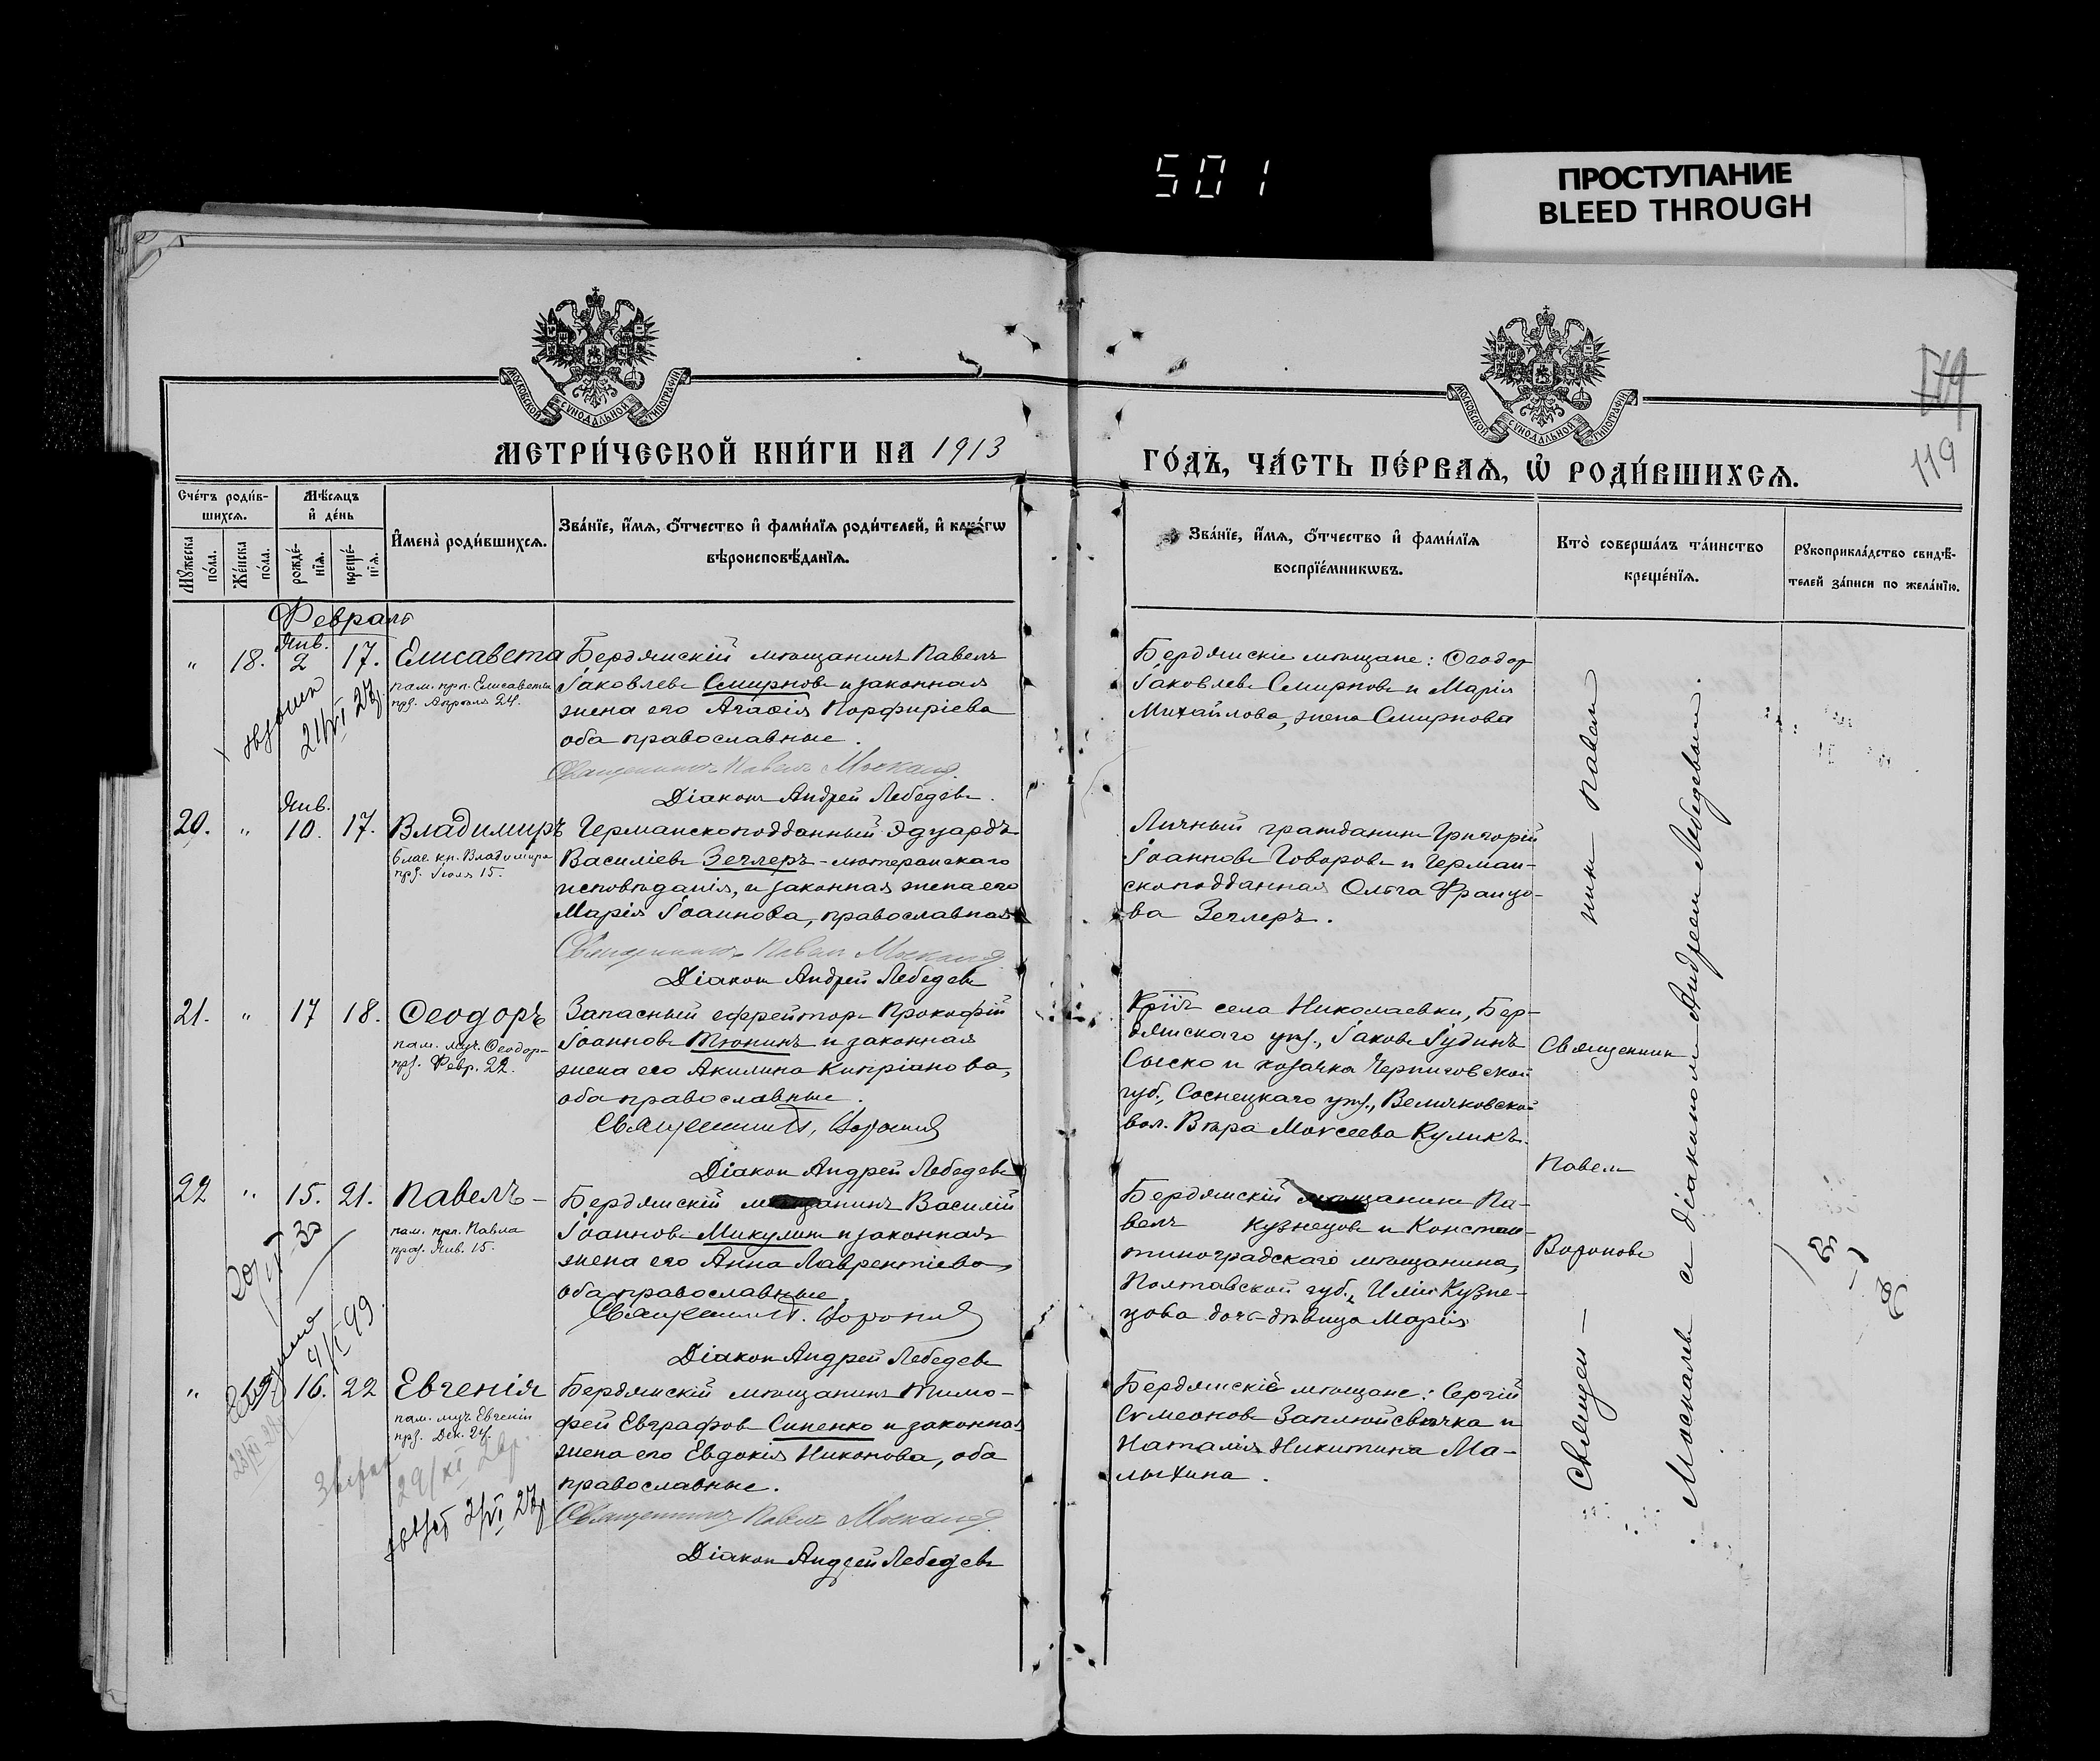 501
ПРОСТУПАНИЕ
BLEED THROUGH
МОСКОВСКОЙ СѴНОДАЛЬНОЙ ТИПОГРАФІИ
МОСКОВСКОЙ СѴНОДАЛЬНОЙ ТИПОГРАФІИ
119
МЕТРИ́ЧЕСКОЙ КНИ́ГИ НА 1913
ГО́ДЪ, ЧА́СТЬ ПЕ́РВАѦ, Ѡ҆ РОДИ́ВШИХСѦ.
119
Сче́тъ роди́в-
шихсѧ.
Мѣ́сѧцъ
и҆ де́нь
Мꙋ́жеска
по́ла.
Же́нска
по́ла.
рожде́-
нїѧ.
креще́-
нїѧ.
И҆мена̀ роди́вшихсѧ.
Зва́нїе, и҆́мѧ, ѻ҆́тчество и҆ фами́лїѧ роди́телей, и҆ како́гѡ
вѣроисповѣ́данїѧ.
Зва́нїе, и҆́мѧ, ѻ҆́тчество и҆ фами́лїѧ
воспрїе́мникѡвъ.
Кто̀ соверша́лъ та́инство
креще́нїѧ.
Рꙋкоприкла́дство свидѣ́-
телей за́писи по жела́нїю.
Февраль
" 18. Янв. 2 17. Елисавета
пам. прп. Елисаветы
прз. Апреля 24.
21/XI 27г.
Бердянскій мѣщанинъ Павелъ
Іаковлевъ Смирновъ и законная
жена его Агаѳія Порфиріева
оба православные.
Священникъ Павелъ Москалев
Діаконъ Андрей Лебедевъ.
Бердянскіе мѣщане: Ѳеодор
Іаковлевъ Смирновъ и Марія
Михайлова, жена Смирнова
20. " Янв. 10. 17. Владиміръ
благ. кн. Владиміра
прз. Іюля 15.
Германскоподданный Эдуардъ
Василіевъ Зеглеръ - лютеранскаго
исповѣданія, и законная жена его
Марія Іоаннова, православная
Священникъ Павел Москалев
Діаконъ Андрей Лебедевъ
Личный гражданинъ Григорій
Іоанновъ Говоровъ и Герман-
скоподданная Ольга Францо-
ва Зеглеръ.
21. " 17 18. Ѳеодоръ
пам. муч. Ѳеодор-
прз. Февр. 22.
Запасный ефрейторъ Прокофій
Іоанновъ Тюнинъ и законная
жена его Акилина Кипріанова,
оба православные.
Священникъ, Вороновъ
Діаконъ Андрей Лебедевъ
Кр͠нъ села Николаевки, Бер-
дянскаго уѣз., Іаковъ Іудинъ
Сыско и козачка Черниговской
губ., Соснецкаго уѣз., Величковской
вол. Вѣра Моисеева Куликъ.
22 " 15. 21. Павелъ -
пам. прп. Павла
праз. Янв. 15.
Бердянскій мѣщанинъ Василій
Іоанновъ Микулинъ и законная
жена его Анна Лаврентіева,
оба православные.
Священникъ. Вороновъ
Діаконъ Андрей Лебедевъ
Бердянскій мѣщанинъ Па-
велъ Кузнецовъ и Констан-
тиноградскаго мѣщанина,
Полтавской губ., Иліи Кузне-
цова дочь-дѣвица Марія
" 16. 22 Евгенія
пам. муч. Евгеніи
прз. Дек. 24.
Бердянскій мѣщанинъ Тимо-
фей Евграфовъ Синенко и законная
жена его Евдокія Никонова, оба
православные.
Священникъ Павелъ Москалев
Діаконъ Андрей Лебедевъ
Бердянскіе мѣщане: Сергій
Сѵмеоновъ Заплюйсвѣчка и
Наталія Никитина Ма-
лыхина.
Священ-
никъ Павелъ
Москалевъ съ діакономъ Андреемъ Лебедевымъ.
Священникъ
Павелъ
Вороновъ